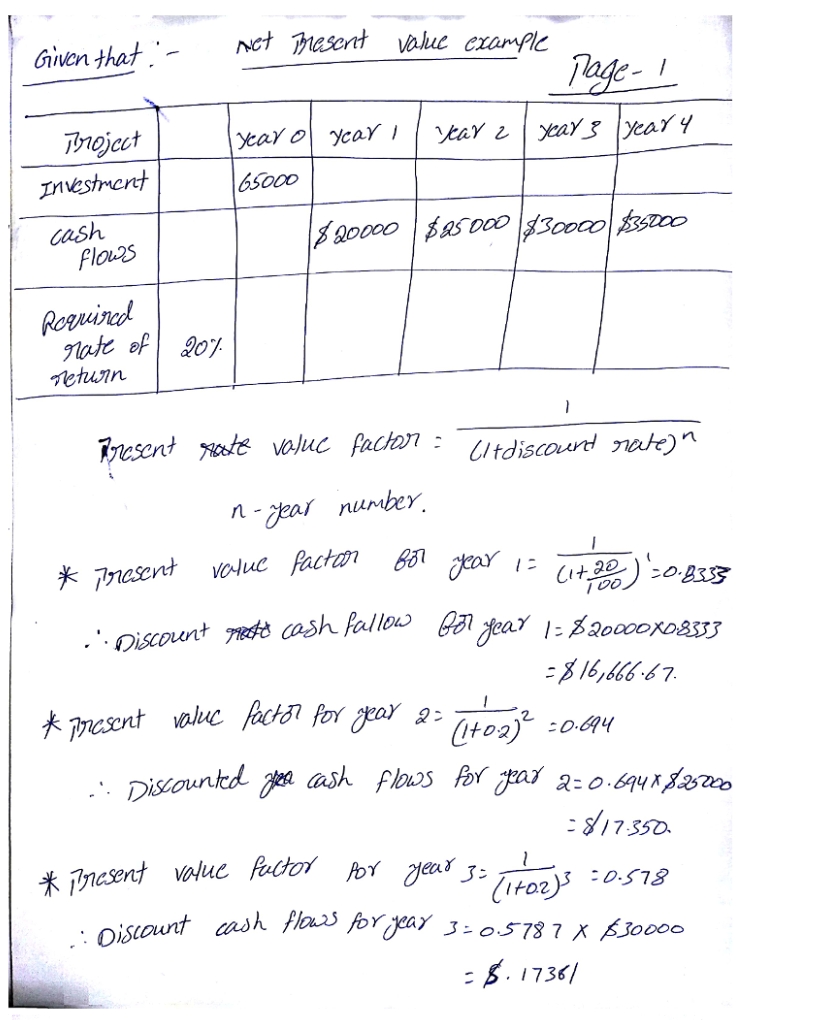 Given that :- Net Present value example
Page-1
Project year 0 year 1 year 2 year 3 year 4
Investment 65000
cash flows $20000 $25000 $30000 $35000
Required rate of return 20%
Present rate value factor = 1/(1+discount rate)^n
n - year number.
* Present value factor for year 1 = 1/(1+20/100)^1 = 0.8333
∴ Discount rate cash fallow for year 1 = $20000X0.8333
= $16,666.67.
* Present value factor for year 2 = 1/(1+0.2)^2 = 0.694
∴ Discounted yea cash flows for year 2 = 0.694 x $25000
= $17350.
* Present value factor for year 3 = 1/(1+0.2)^3 = 0.578
∴ Discount cash flows for year 3 = 0.5787 x $30000
= $.17361